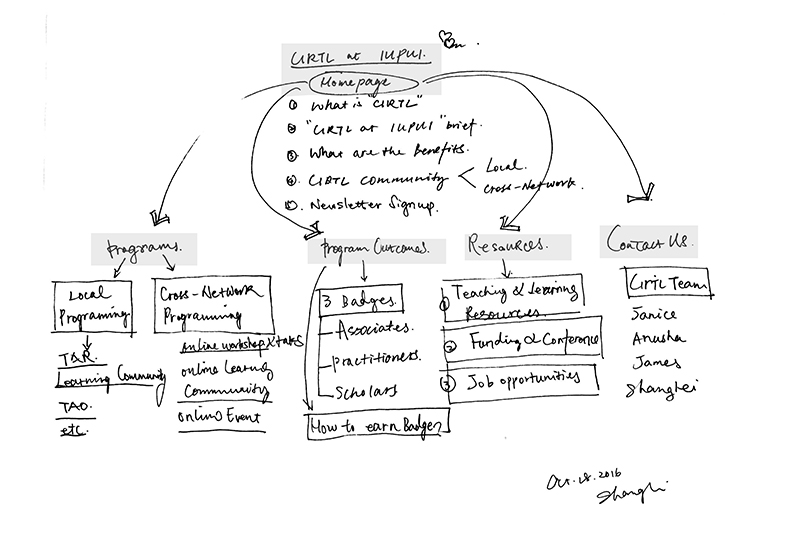 CIRTL at IUPUI.
Homepage
① What is "CIRTL"
② "CIRTL at IUPUI" brief.
③ What are the Benefits.
④ CIRTL Community
Local.
Cross-Network.
⑤. Newsletter Signup.
Programs.
Local
Programing
T&R.
Learning Community
TAO.
etc.
Cross-Network
Programming
online workshop & talks
online Learng
Community
online Event
Program Outcomes.
3 Badges.
Associates.
Practitioners.
Scholars
How to earn Badges
Resources.
① Teaching & Learning
Resources.
② Funding & Conference
③ Job opportunities
Contact Us.
CIRTL Team
Janice
Anusha
James
Shanghei
Oct. 18. 2016